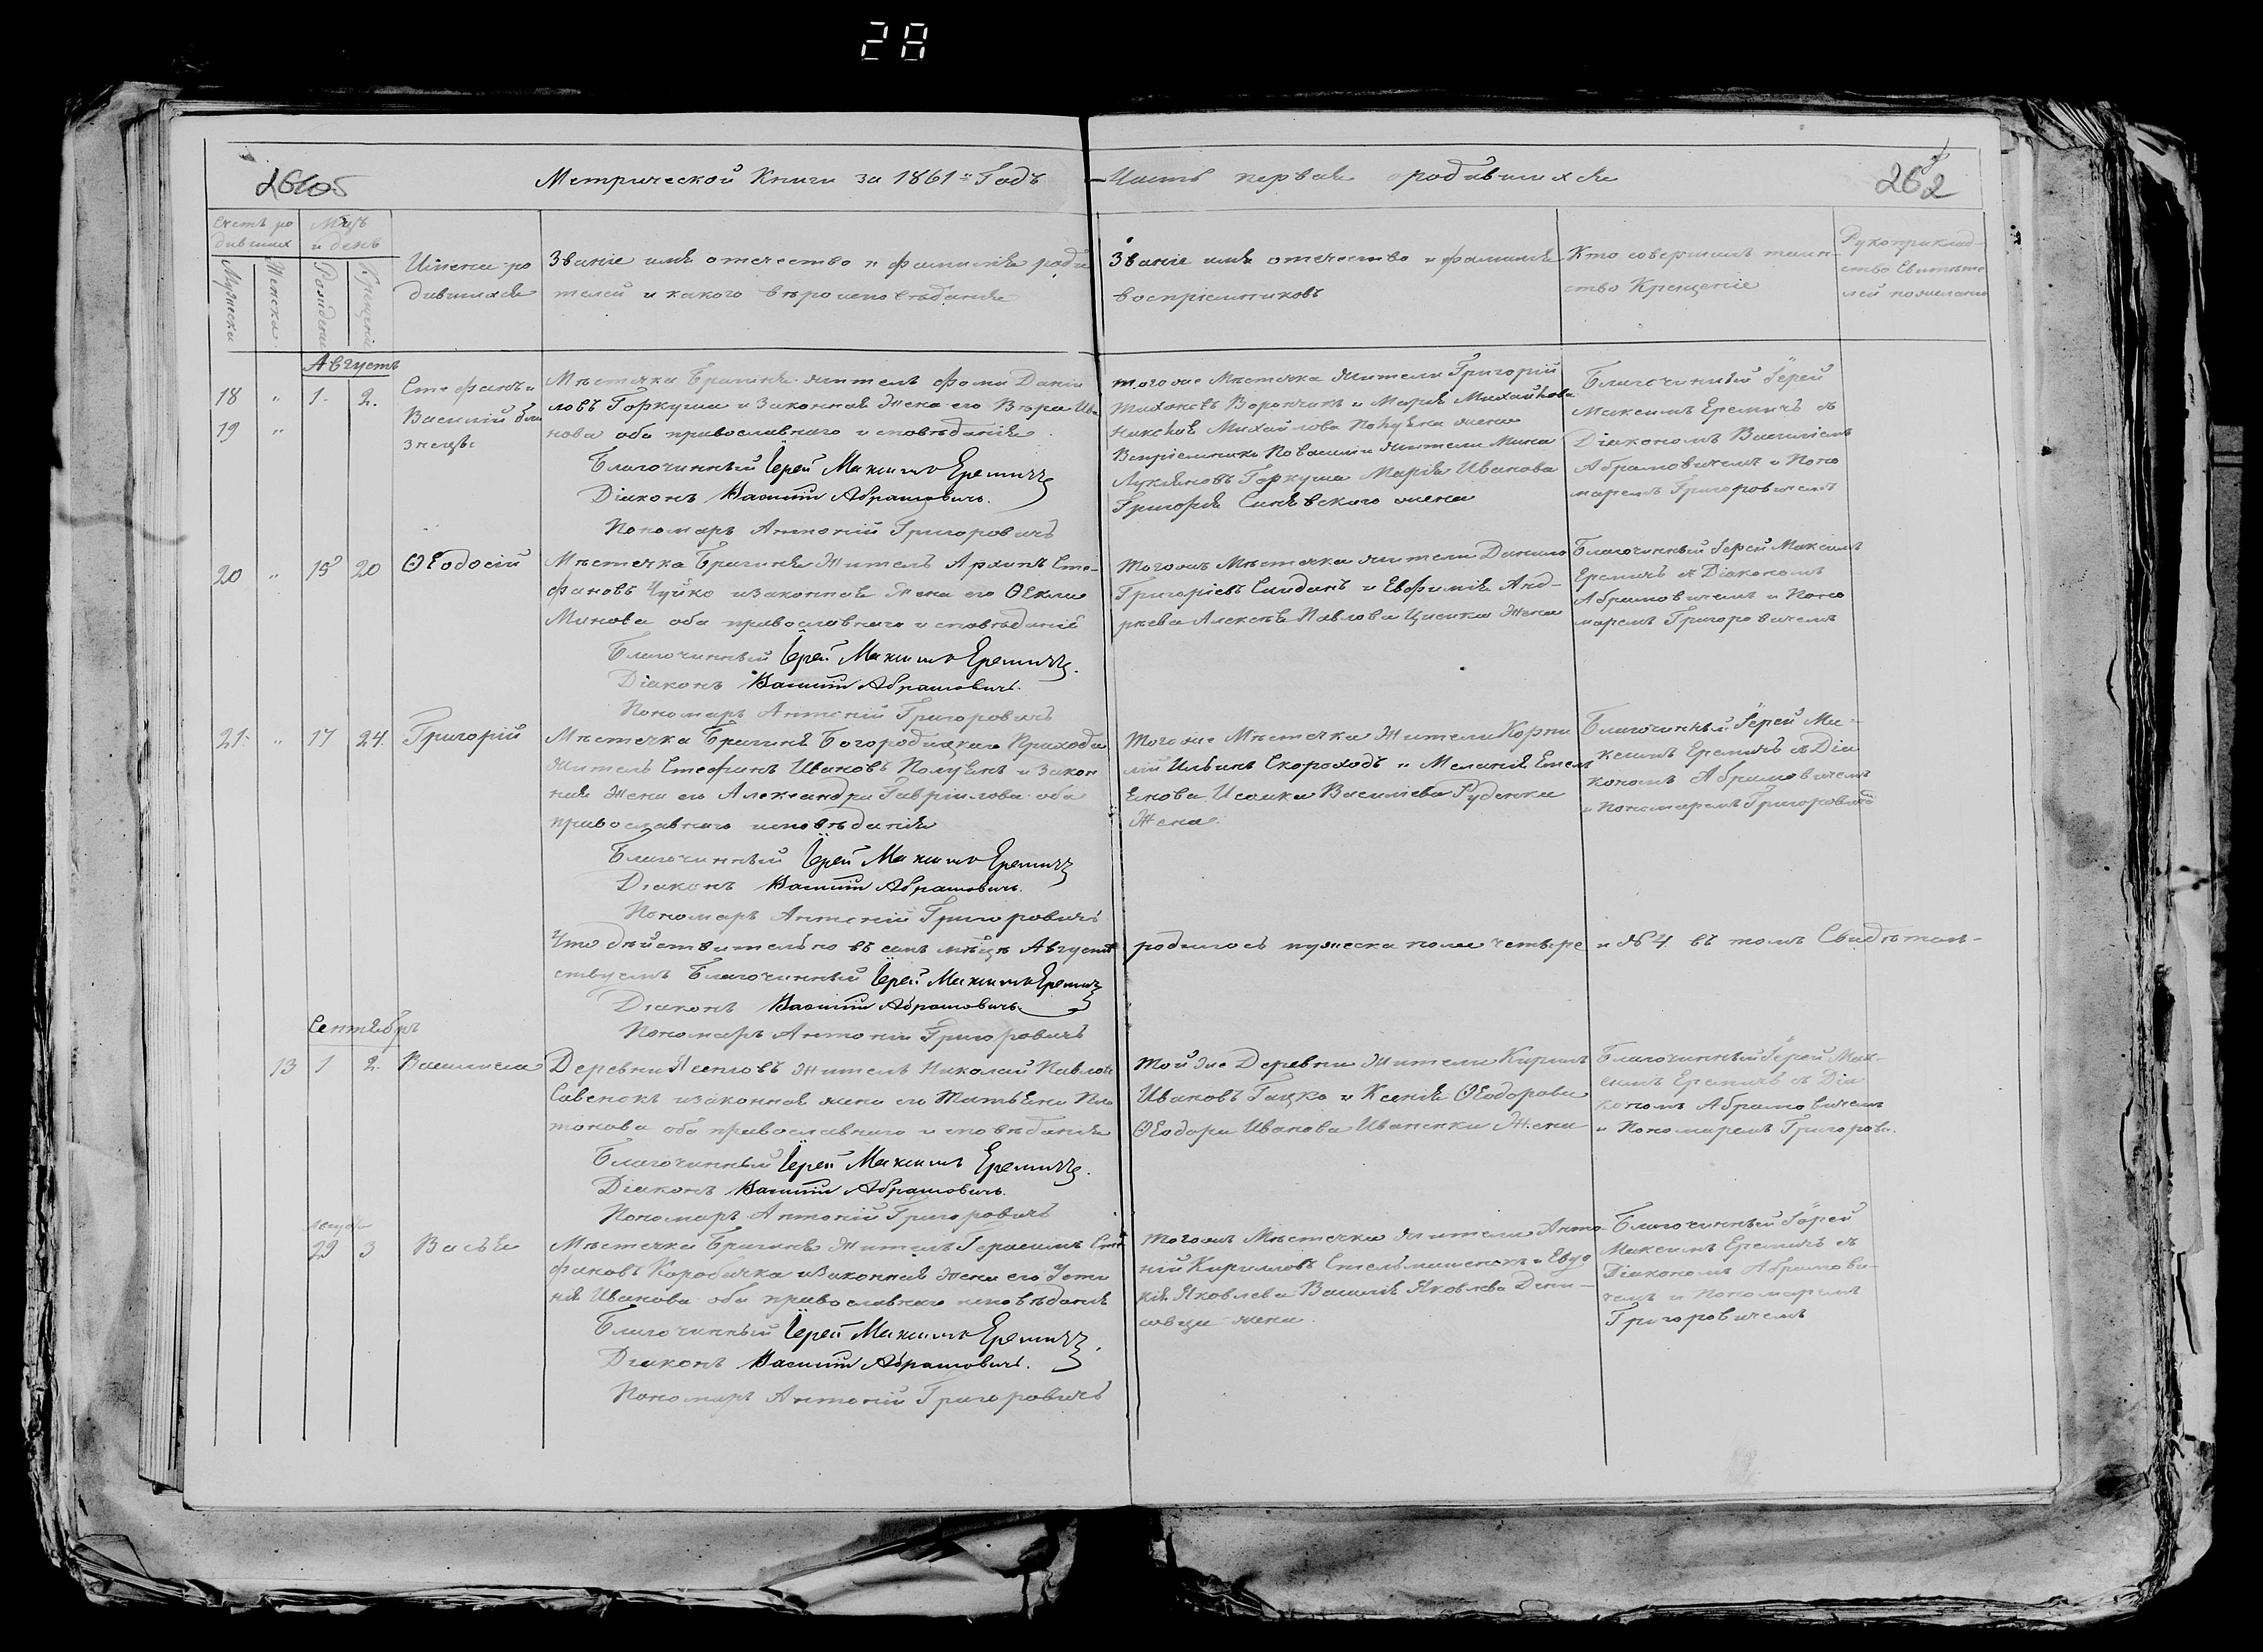 28
Метрической Книги за 1861й Годъ
Часть первая о родившихся
262
Счетъ ро
дившихся
Мужеска
Женска
Мцъ
и день
Рожденія
Крещенія
Имена ро
дившихся
Званіе имя отечество и фамилія роди
телей и какого вѣроисповѣданія
Званіе имя отечество и фамилія
воспріемниковъ
Кто совершилъ таин-
ство Крещеніе
Рукоприклад-
ство Свидѣте
лей по желанію
Августъ
18 " 1. 2.
19 "
Стефанъ и
Василій
Мѣстечка Брагиня житель Фома Дании
ловъ Горкуша и Законная Жена его Вѣра Ива
нова оба православнаго исповѣданія
Благочинный Іерей Максимъ Еремичъ
Діаконъ Василій Абрамовичъ.
Пономарь Антоній Григоровичъ
того же Мѣстечка Жители Григорій
Воропчикъ и Марія Михайлова
Михайлова жена
Воспріемники жители Мина
Лукьяновъ Горкуша Марія Иванова
Григорія Синявского жена
Благочинный Іерей
Максимъ Еремичъ съ
Діакономъ Василіемъ
Абрамовичемъ и Поно
маремъ Григоровичемъ
20 " 15 20
Ѳеодосій
Мѣстечка Брагиня Житель Архипъ Сте-
фановъ Чуйко и законная Жена его Ѳекла
Минова оба православнаго исповѣданія
Благочинный Іерей Максимъ Еремичъ.
Діаконъ Василій Абрамовичъ.
Пономарь Антоній Григоровичъ
Тогожъ Мѣстечка жители Данило
Григоріевъ и Евфимія Анд-
рѣева Алексѣя Павлова Жена
Благочинный Іерей Максимъ
Еремичъ съ Діакономъ
Абрамовичемъ и Поно
маремъ Григоровичемъ
21. " 17 24.
Григорій
Мѣстечка Брагиня Богородицкаго Прихода
житель Стефанъ Ивановъ и Закон
ная Жена его Александра Гавріилова оба
православнаго исповѣданія
Благочинный Іерей Максимъ Еремичъ
Діаконъ Василій Абрамовичъ.
Пономарь Антоній Григоровичъ
Того же Мѣстечка Жители Корни
лій Ильинъ Скороходъ и Меланія Емел
Исаака Василіева Руденка
Жена.
Благочинный Іерей Ма-
ксимъ Еремичъ съ Діа
кономъ Абрамовичемъ
и Пономаремъ Григорович
Что дѣйствительно въ семъ мѣцѣ Августѣ родилось мужеска пола четыре и № 4 въ томъ Свидѣтель-
ствуемъ Благочинный Іерей Максимъ Еремичъ
Діаконъ Василій Абрамовичъ
Пономарь Антоній Григоровичъ
Сентябрь
13 1 2.
Василиса
Деревни житель Николай Павловъ
Савенокъ и законная жена его Татьяна Пла
тонова оба православнаго исповѣданія
Благочинный Іерей Максимъ Еремичъ.
Діаконъ Василій Абрамовичъ.
Пономарь Антоній Григоровичъ
Той же Деревни Жители Кирилъ
Ивановъ Гацко и Ксенія Ѳеодорова
Ѳеодора Иванова Иваненка Жена
Благочинный Іерей Мак-
симъ Еремичъ съ Діа
кономъ Абрамовичемъ
и Пономаремъ Григоров.
29 3
Васса
Мѣстечка Брагиня Житель Герасимъ Сте
фановъ Коробачка и Законная Жена его Усти
нія Иванова оба православнаго исповѣданія
Благочинный Іерей Максимъ Еремичъ.
Діаконъ Василій Абрамовичъ.
Пономарь Антоній Григоровичъ
Тогожъ Мѣстечка Жители Анто-
ній Кириловъ и Евдо
кія Яковлева Василія Яковлева Дени-
совца жена.
Благочинный Іерей
Максимъ Еремичъ съ
Діакономъ Абрамови-
чемъ и Пономаремъ
Григоровичемъ